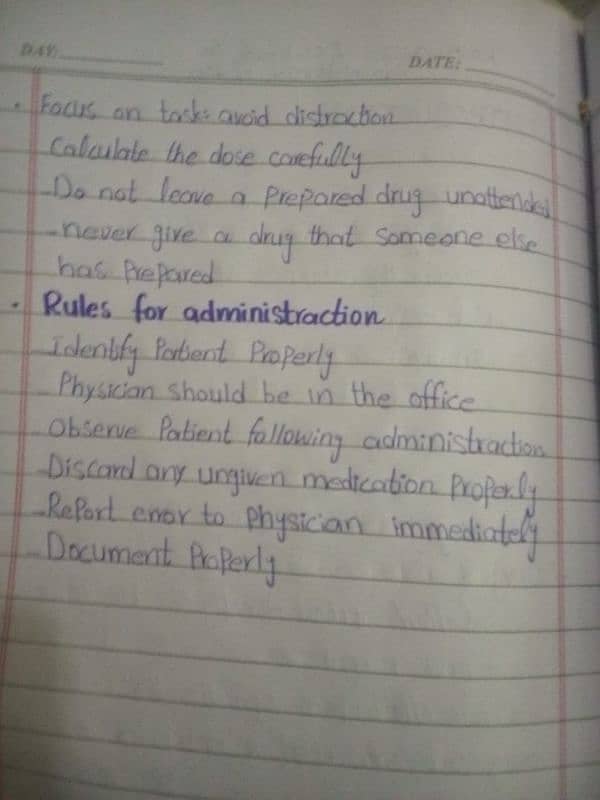 DAY:
DATE:
• Focus on task: avoid distraction
Calculate the dose carefully
Do not leave a Prepared drug unattended
-never give a drug that someone else
has Prepared
• Rules for administraction
Identify Patient Properly
Physician should be in the office
Observe Patient following administraction
Discard any ungiven medication Properly
-Report error to Physician immediately
Document Properly